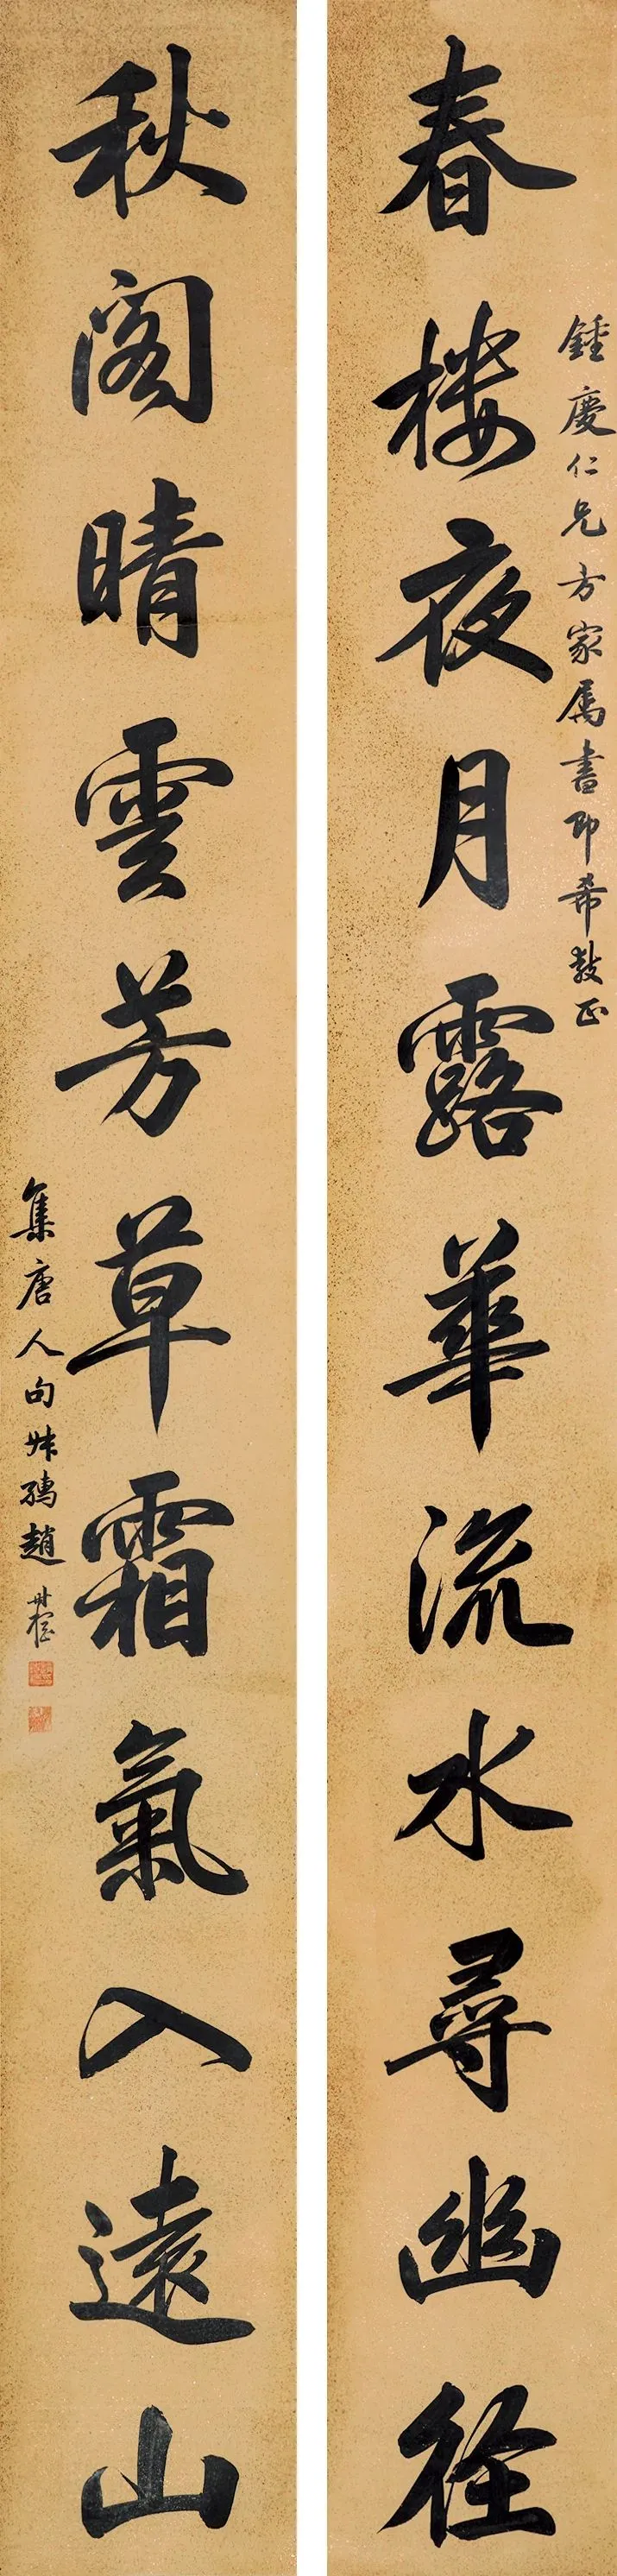 鍾慶仁兄方家属書即希教正
春楼夜月露華流水尋幽徑
秋阁晴雲芳草霜氣入遠山
集唐人句妹鴻趙世樫